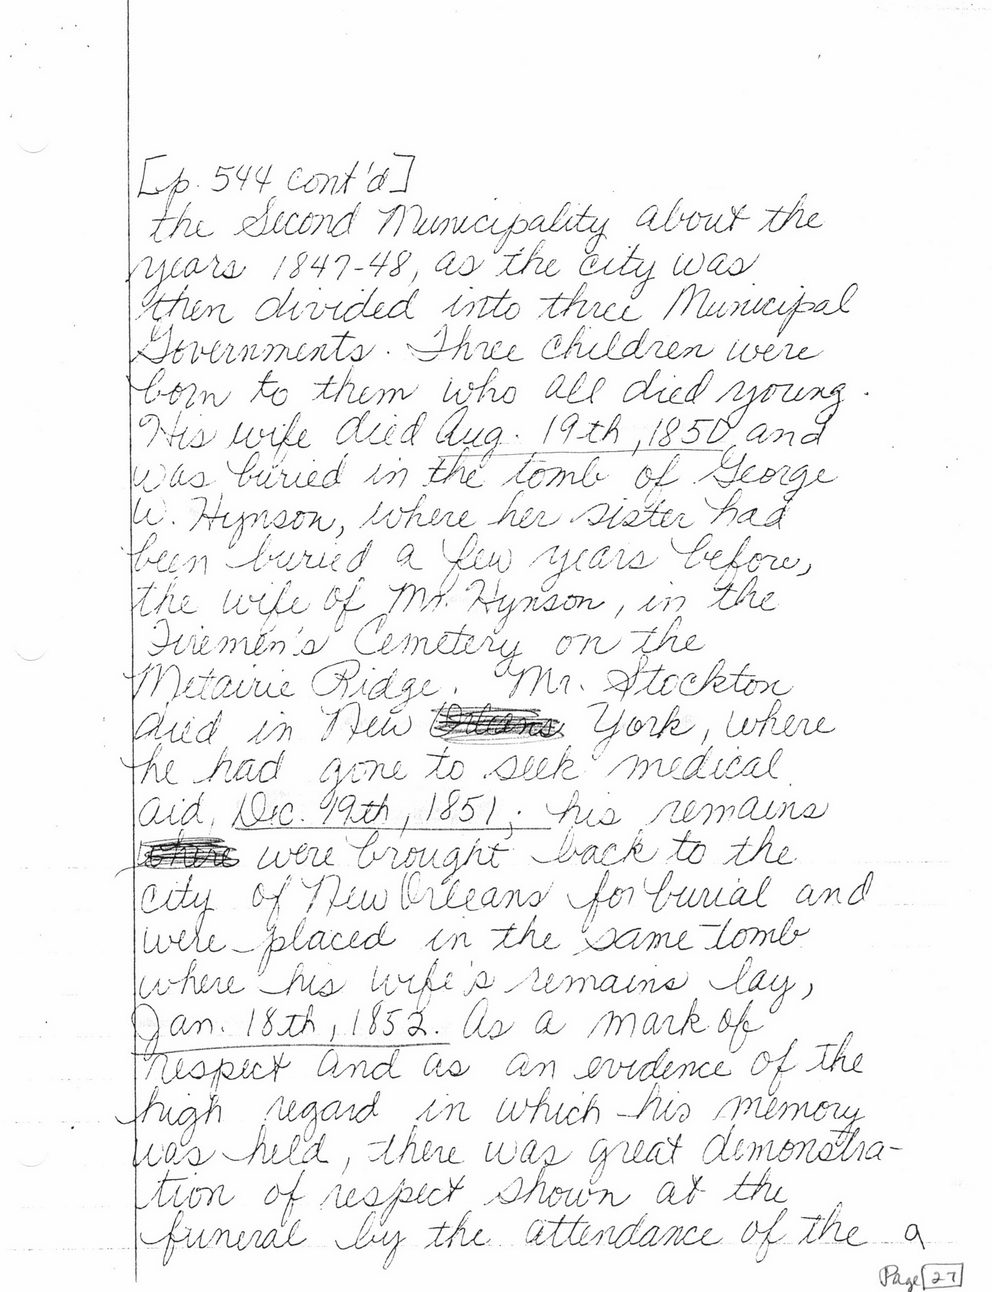 [p. 544 cont'd]
the Second Municipality about the
years 1847-48, as the city was
then divided into three Municipal
Governments. Three children were
born to them who all died young.
His wife died Aug. 19th, 1850 and
was buried in the tomb of George
W. Hynson, where her sister had
been buried a few years before,
the wife of Mr. Hynson, in the
Firemen's Cemetery on the
Metairie Ridge. Mr. Stockton
died in New Orleans York, where
he had gone to seek medical
aid, Dec. 19th, 1851; his remains
where were brought back to the
city of New Orleans for burial and
were placed in the same tomb
where his wife's remains lay,
Jan. 18th, 1852. As a mark of
respect and as an evidence of the
high regard in which his memory
was held, there was great demonstra-
tion of respect shown at the
funeral by the attendance of the 9
Page 27